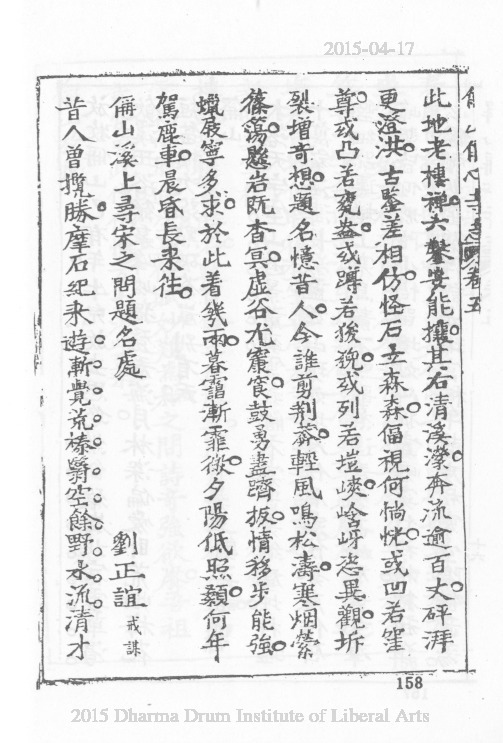 2015-04-17
此地老棲禪六鑿安能攘其右清溪瀠奔流逾百丈砰湃
更澄洪古鑒差相仿怪石立森森偪視何惝恍或凹若窪
尊或凸若甕盎或蹲若狻猊或列若塏峽峆岈恣異觀坼
裂增奇想題名憶昔人今誰剪荆莽輕風鳴松濤寒烟縈
篠蕩巖岩既杳冥虛谷尤窾賓鼓勇盡躋扳情移步能強
蠟屐寧多求於此着幾兩暮靄漸霏微夕陽低照顥何年
駕鹿車晨昏長來往
偏山溪上尋宋之問題名處
劉正誼 戒謀
昔人曾攬勝摩石紀來遊漸覺荒榛翳空餘野水流清才
158
2015 Dharma Drum Institute of Liberal Arts